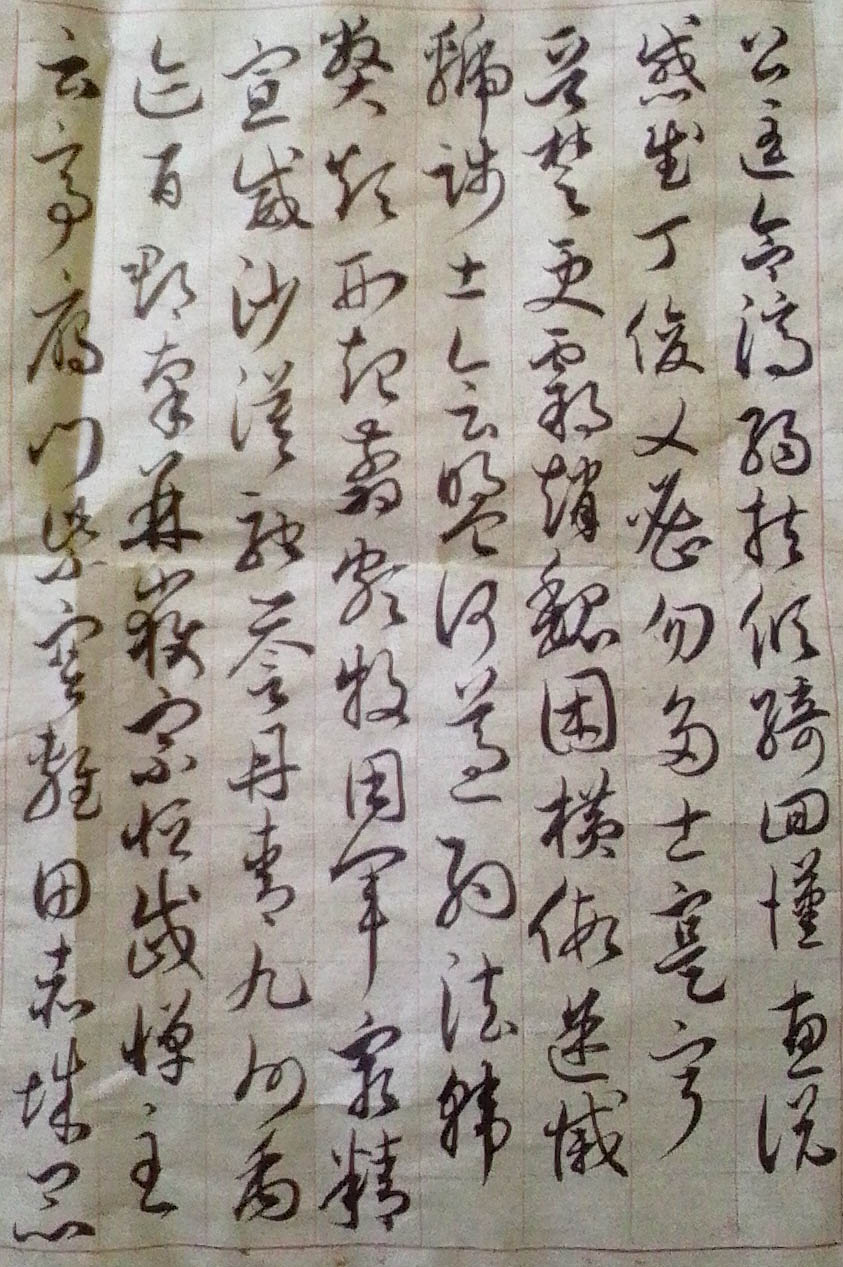 公匡合濟弱扶傾綺回漢惠說
感武丁俊乂密勿多士寔寧
晉楚更霸趙魏困橫假途滅
虢踐土會盟何遵約法韓
弊煩刑起翦頗牧用軍最精
宣威沙漠馳譽丹青九州禹
迹百郡秦并嶽宗恒岱禪主
云亭雁門紫塞雞田赤城昆